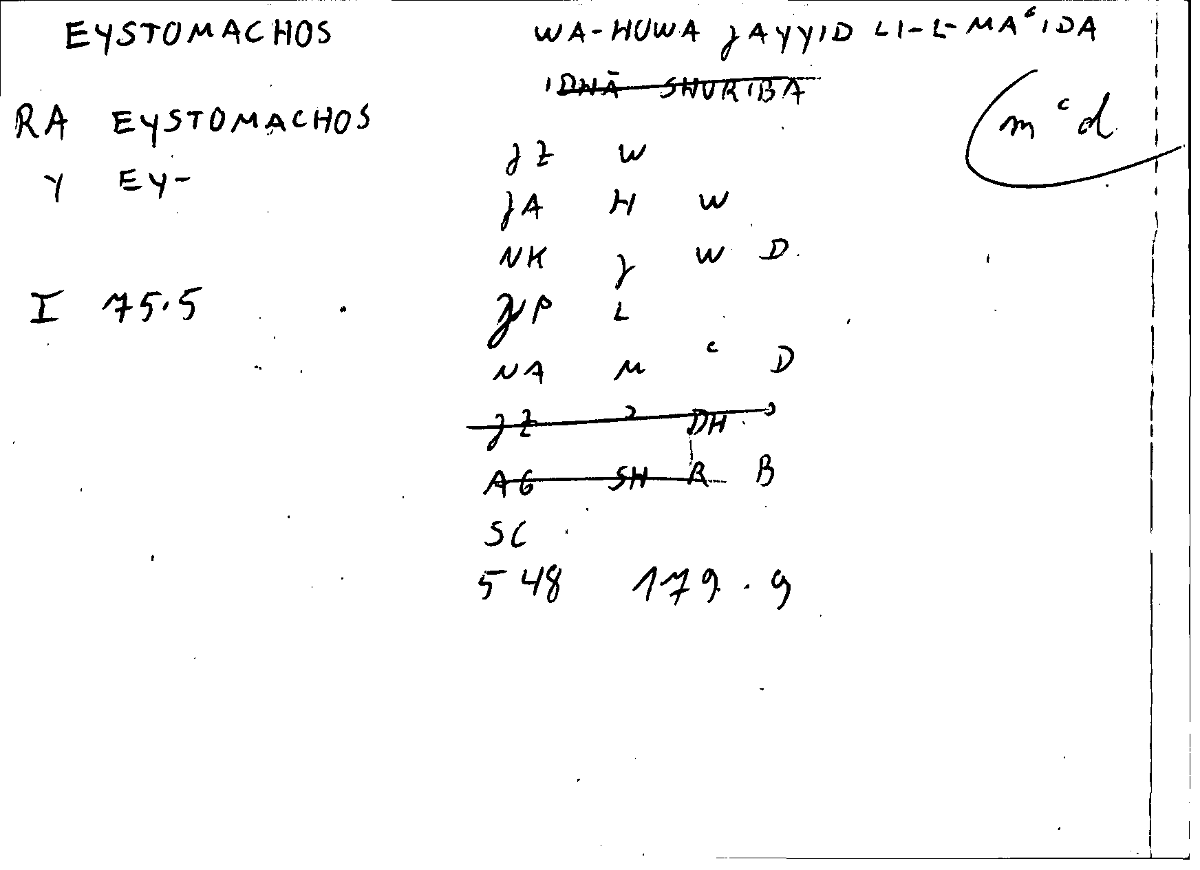 EYSTOMACHOS
WA-HUWA JAYYID LI-L-MAʿIDA
IDHĀ SHURIBA
RA EYSTOMACHOS
Y EY-
I 75.5
mᶜd
JZ W
JA H W
NK J W D
JP L
NA M ᶜ D
JZ ʾ DH ʾ
AG SH R B
SC
548 179.9